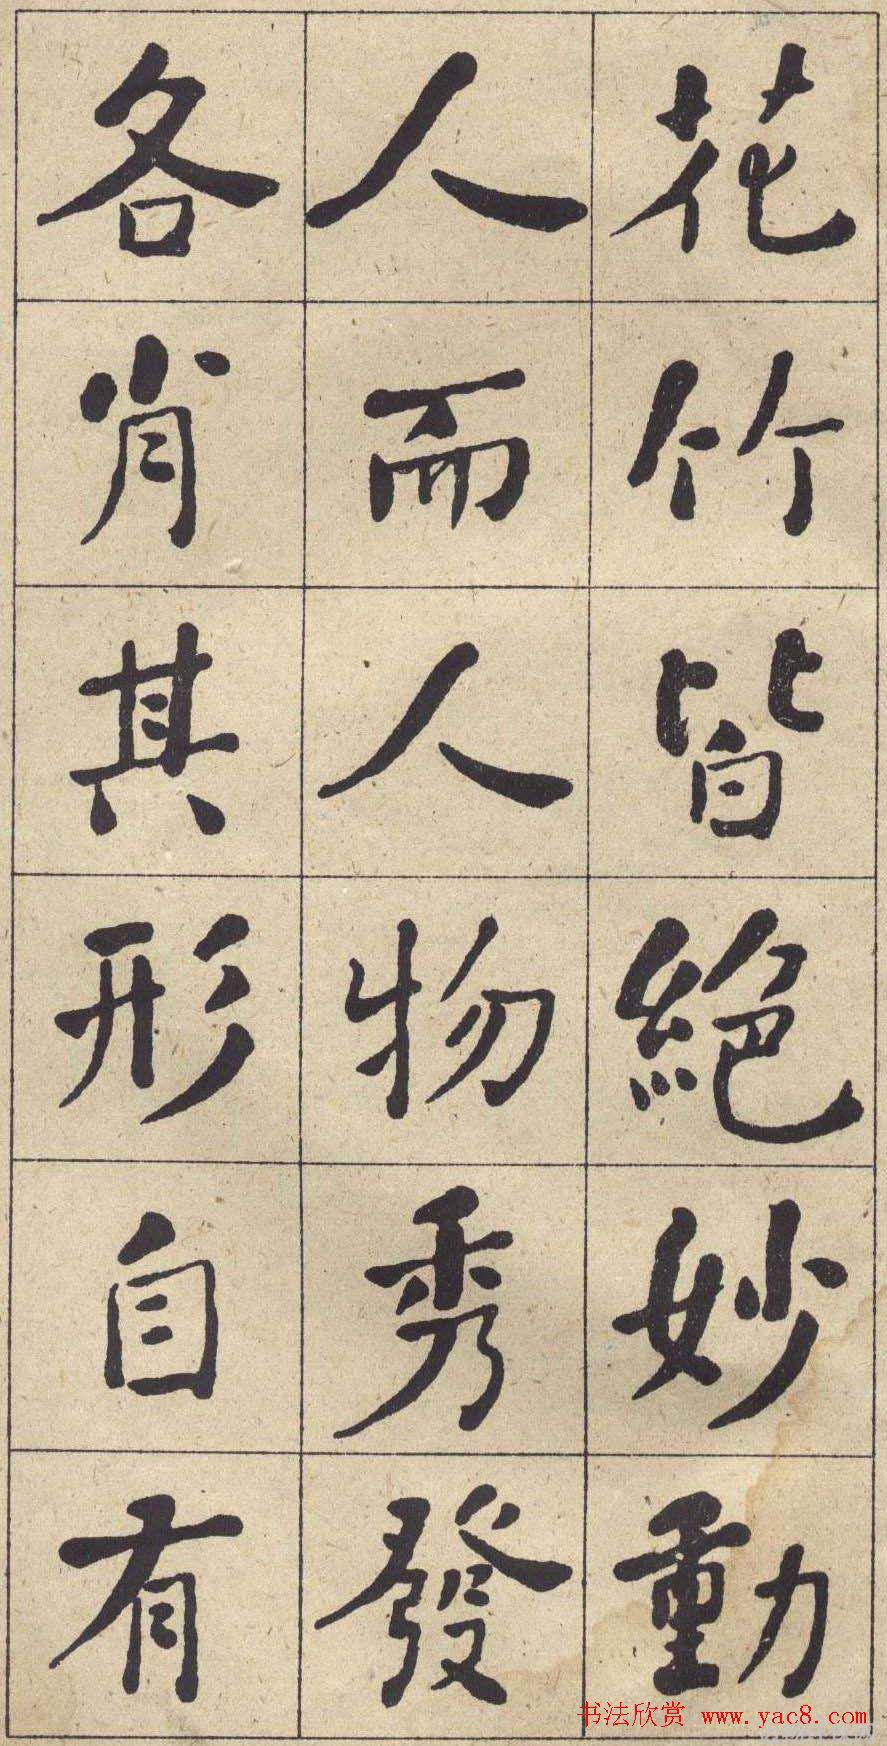 花竹皆絕妙動
人而人物秀發
各肖其形自有
书法欣赏 www.yac8.com